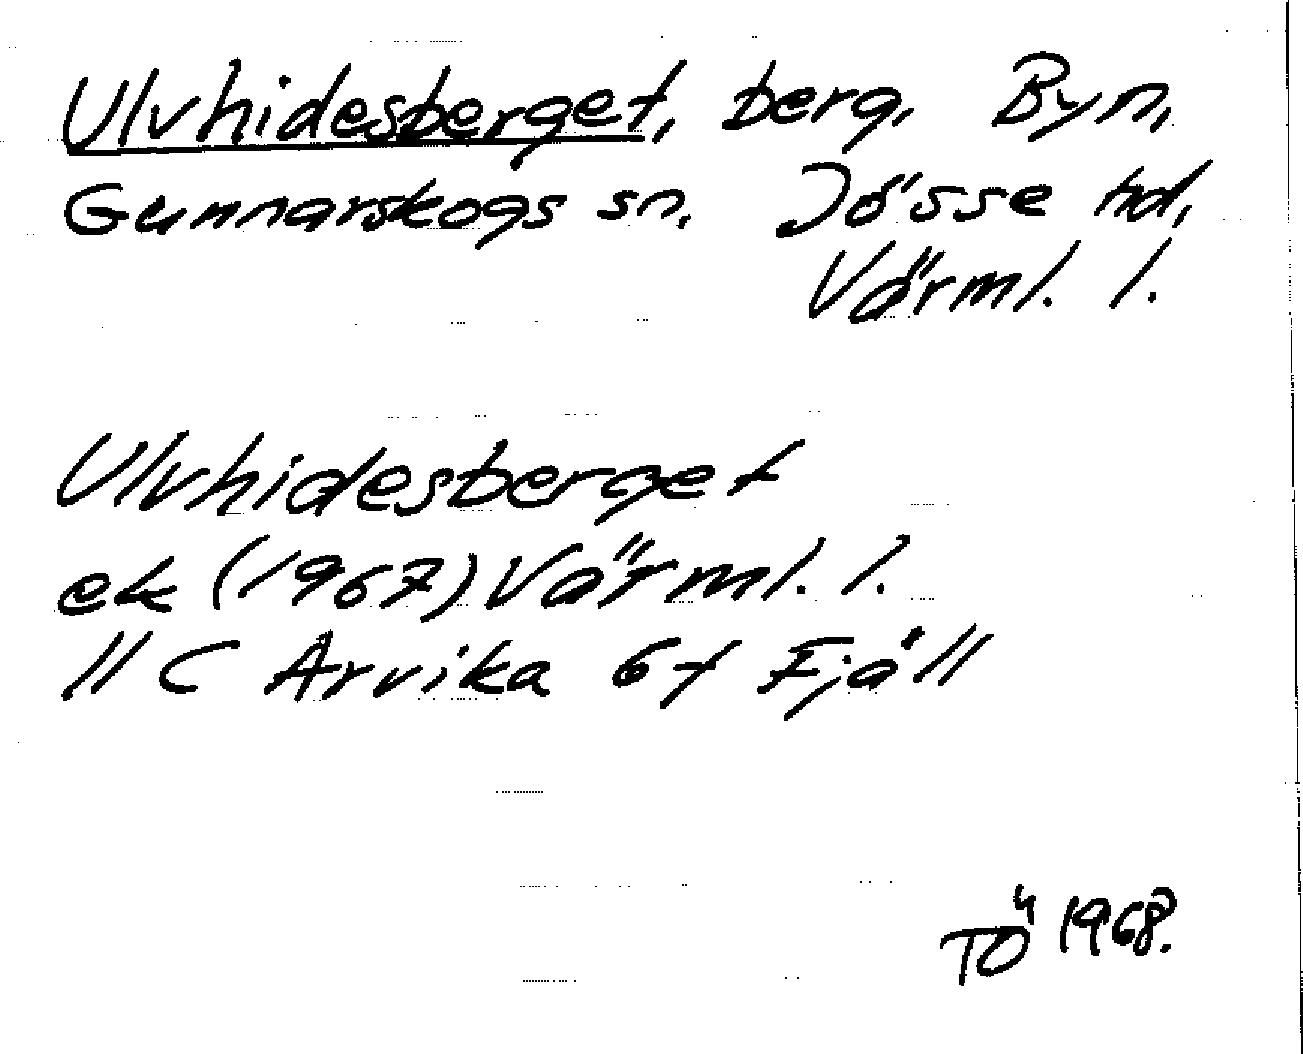 Ulvhidesberget, berg. Byn,
Gunnarskogs sn. Jösse hd,
Värml. l.
Ulvhidesberget
ek (1967) Värml. l.
11 C Arvika 6f Fjäll
TÖ 1968.